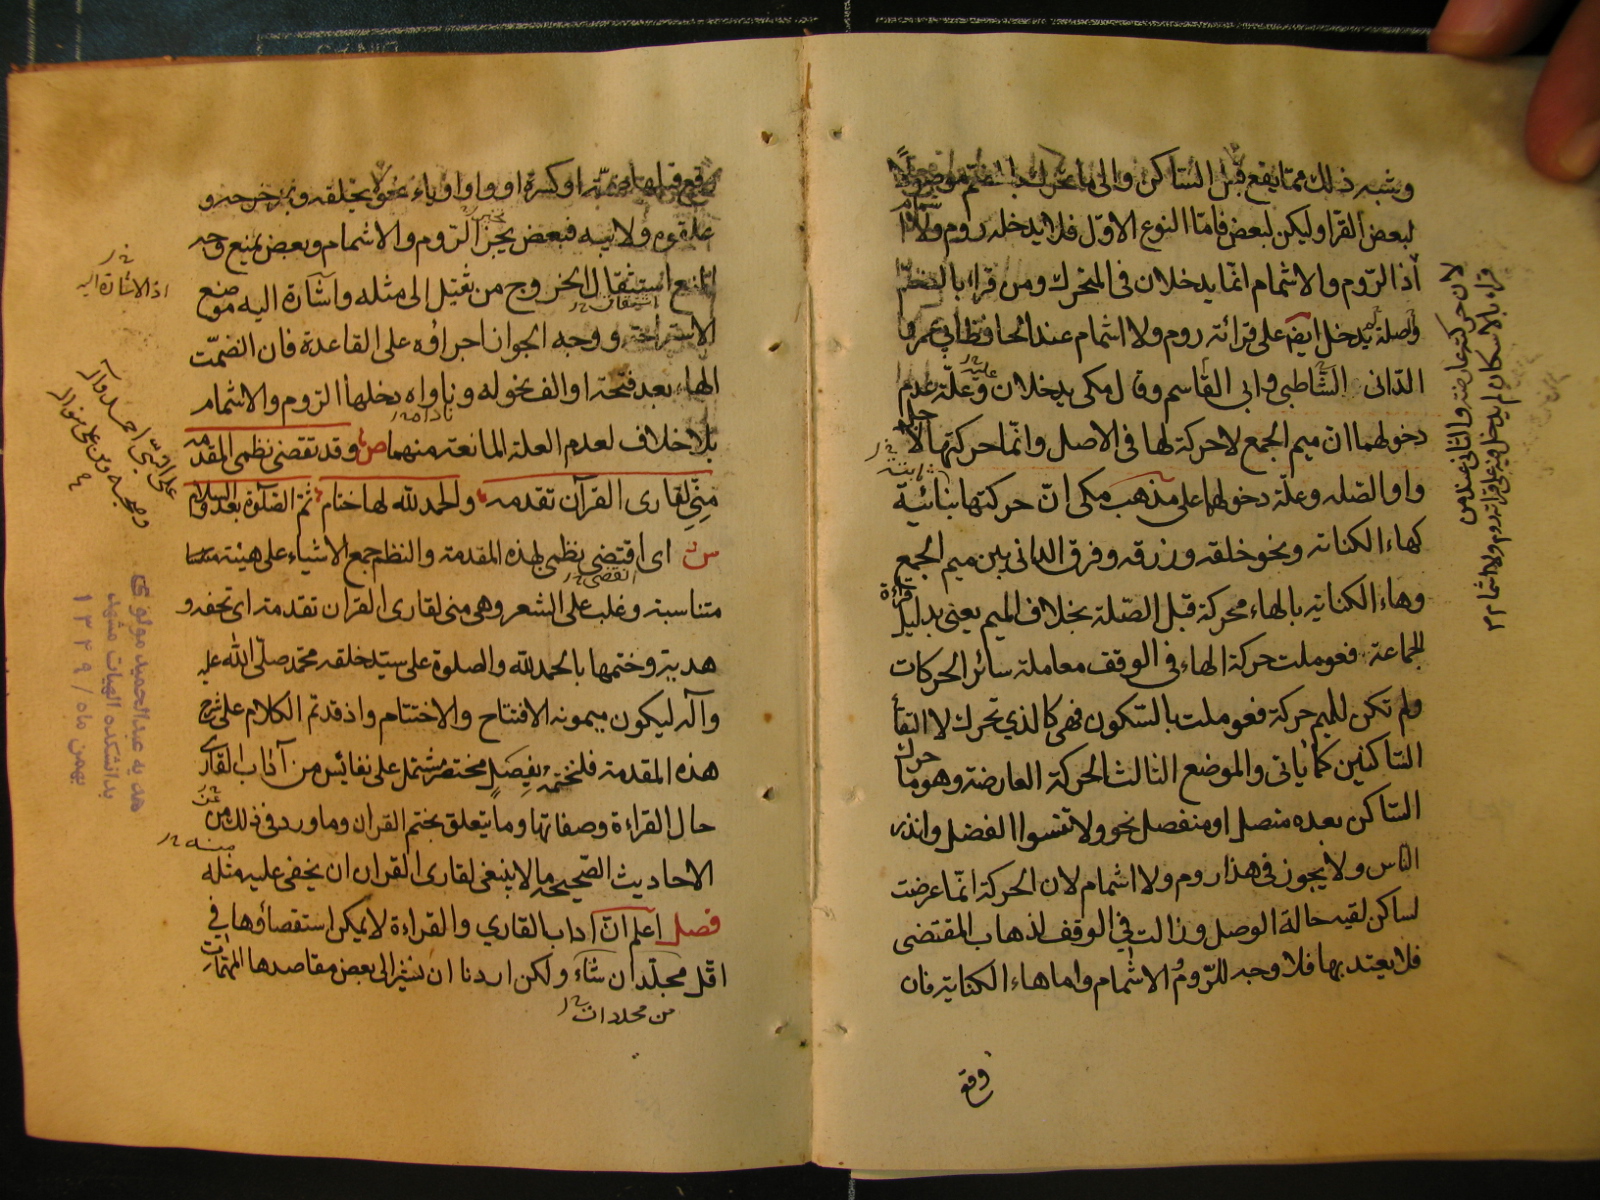 وشبه ذلك مما يقع قبل الساكن والى ما تحرك بالضم موصولا
لبعض القرا وليكن لبعض فامّا النوع الاوّل فلا يدخله روم ولا اشمام
اذ الرّوم والاشمام انمّا يدخلان فى المتحرك ومن قراء بالضمّ
وصلة يدخل ايضا على قرائة روم ولا اشمام عند الحافظ ابي عمرو
الدّانى الشّاطبى وابى القاسم وقال مكى يدخلان وعلّة عدم
دخولهما ان ميم الجمع لا حركة لها فى الاصل وانّما حركتها لاجل
واو الصّله وعلّة دخولها على مذهب مكى انّ حركتها بنائيّة
كهاء الكناته ونحو خلقه ورزقه وفرق الدانى بين ميم الجمع
وهاء الكنايه بالهاء محركة قبل الصّلة بخلاف الميم يعنى بدليل قراءة
الجماعة فعوملت حركة الهاء فى الوقف معاملة سائر الحركات
ولم تكن للميم حركة فعوملت بالسّكون فهى كالذي تحرك لالتقاء
السّاكنين كما ياتى والموضع الثالث الحركة العارضة وهو ما حرك
السّاكن بعده متصل او منفصل نحو ولا تنسوا الفضل وانذر
الناس ولا يجوز فى هذا روم ولا اشمام لان الحركة انمّا عرضت
لساكن لقيه حالة الوصل وزالت في الوقف لذهاب المقتضى
فلا يعتد بها فلا وجه للرّوم الاشمام واما هاء الكناية فان
وقع
لان حركته عارضة والثانى عند من
قراء بالاسكان لم يدخل فيه على قراءته روم ولا اشمام
وقع قبلها ضمّة او كسرة او واو او ياء نحو يخلقه وبمزحزحه و
عقلوه ولابيه فبعض يجز الرّوم والاشمام وبعض يمنع وجه
المنع استثقال الخروج من ثقيل الى مثله واشارة اليه موضع
الاستراحة ووجه الجواز اجراؤه على القاعدة فان انضمّت
الهاء بعد فتحة او الف نحو له وناداه دخلها الرّوم والاشمام
بلا خلاف لعدم العلة المانعة منهما ص وقد تقضى نظمى المقدمه
منّي لقارى القرآن تقدمه والحمد لله لها ختام ثم الصّلوة بعد والسلام
ش اى اقتضى نظمى لهذه المقدمة والنظم جمع الاشياء على هيئته
متناسبة وغلب على الشعر وهى منى لقارى القران تقدمة اى تحفه و
هدية وختمها بالحمد لله والصلوة على سيّد خلقه محمّد صلّى الله عليه
وآله ليكون ميمونه الافتتاح والاختتام واذ قد تم الكلام على شرح
هذه المقدمة فلنختمه بفصلٍ مختصر مشتمل على نفائس من آداب القارى
حال القراءة وصفاتها وما يتعلق بختم القران وما ورد فى ذلك من
الاحاديث الصّحيحه ما لا ينبغى لقارى القران ان يخفى عليه مثله
فصل اعلم انّ اداب القاري والقراءة لا يمكن استقصاؤها في
اقل مجلّدان شاء ولكن اردنا ان نشير الى بعض مقاصدها المهمّات
من مجلدات
اذ الاشارة اليه
على النّبى احمد وآله
وصحبه ومن على منواله
هديه عبدالحميد مولوى
بدانشكده الهيات مشهد
بهمن ماه / ١٣٤٩